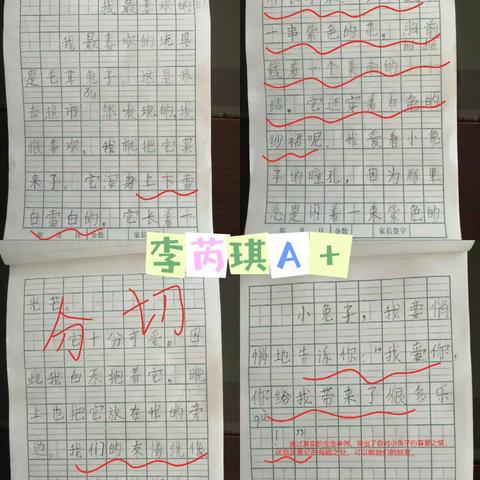 我最喜欢的
我最喜欢的玩具
是毛茸兔子。这是我
去超市 然发现的,我
很喜欢,我就把它买
来了。它浑身上下雪
白雪白的,它长着一
年 月 日 分数 家长签字
一串紫色的花。胸前
戴着一个美丽的
结。它还穿着白色的
纱裙呢。我爱看小兔
子的瞳孔,因为那里
总是闪着一束紫色的
月 日 分数 家长签字
李芮琪A+
光芒。
它十分可爱。因
此我白天抱着它。晚
上也把它放在我的旁
边。我们的友情就像
小兔子,我要悄
悄地告诉你:“我爱你,
你给我带来了很多乐
!”
通过真实的生活事例,突出了你对小兔子的喜爱之情,
这也正是它的有趣之处,可以做我们的朋友。